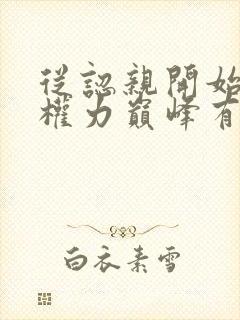 從認親開始
權力巔峰有
白衣素雪